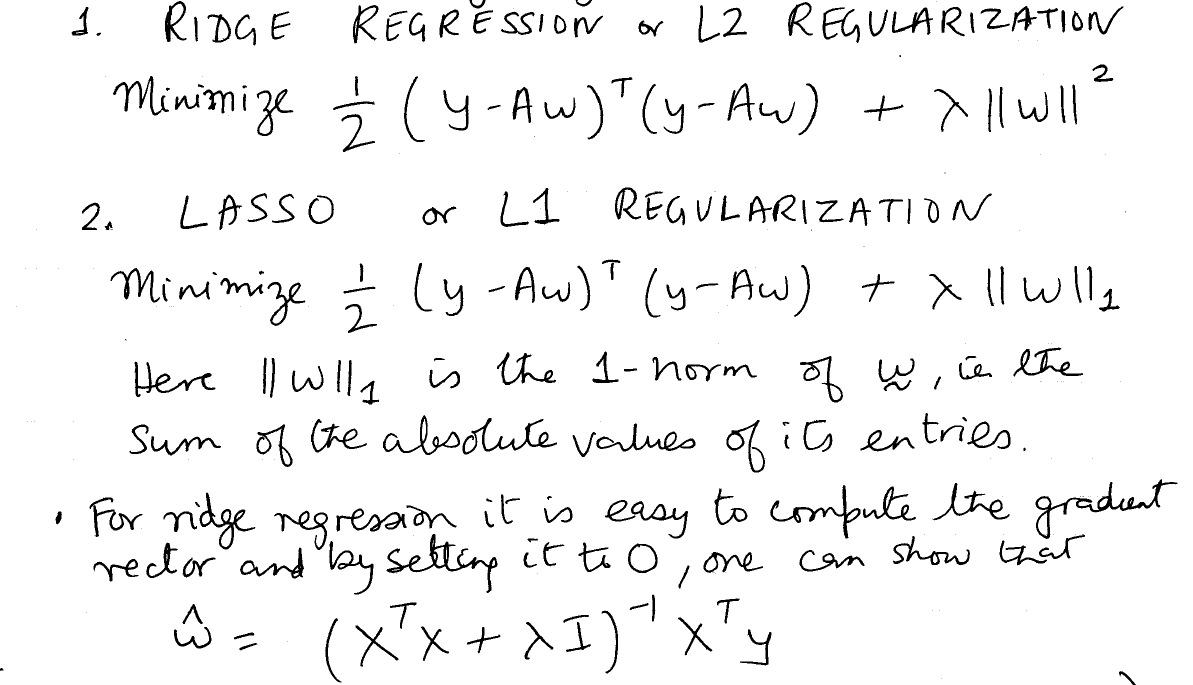 1. RIDGE REGRESSION or L2 REGULARIZATION
Minimize 1/2 (y - Aw)ᵀ (y - Aw) + λ ||w||²
2. LASSO or L1 REGULARIZATION
Minimize 1/2 (y - Aw)ᵀ (y - Aw) + λ ||w||₁
Here ||w||₁ is the 1-norm of w, ie the
sum of the absolute values of its entries.
• For ridge regression it is easy to compute the gradient
vector and by setting it to 0, one can show that
ŵ = (XᵀX + λI)⁻¹ Xᵀy